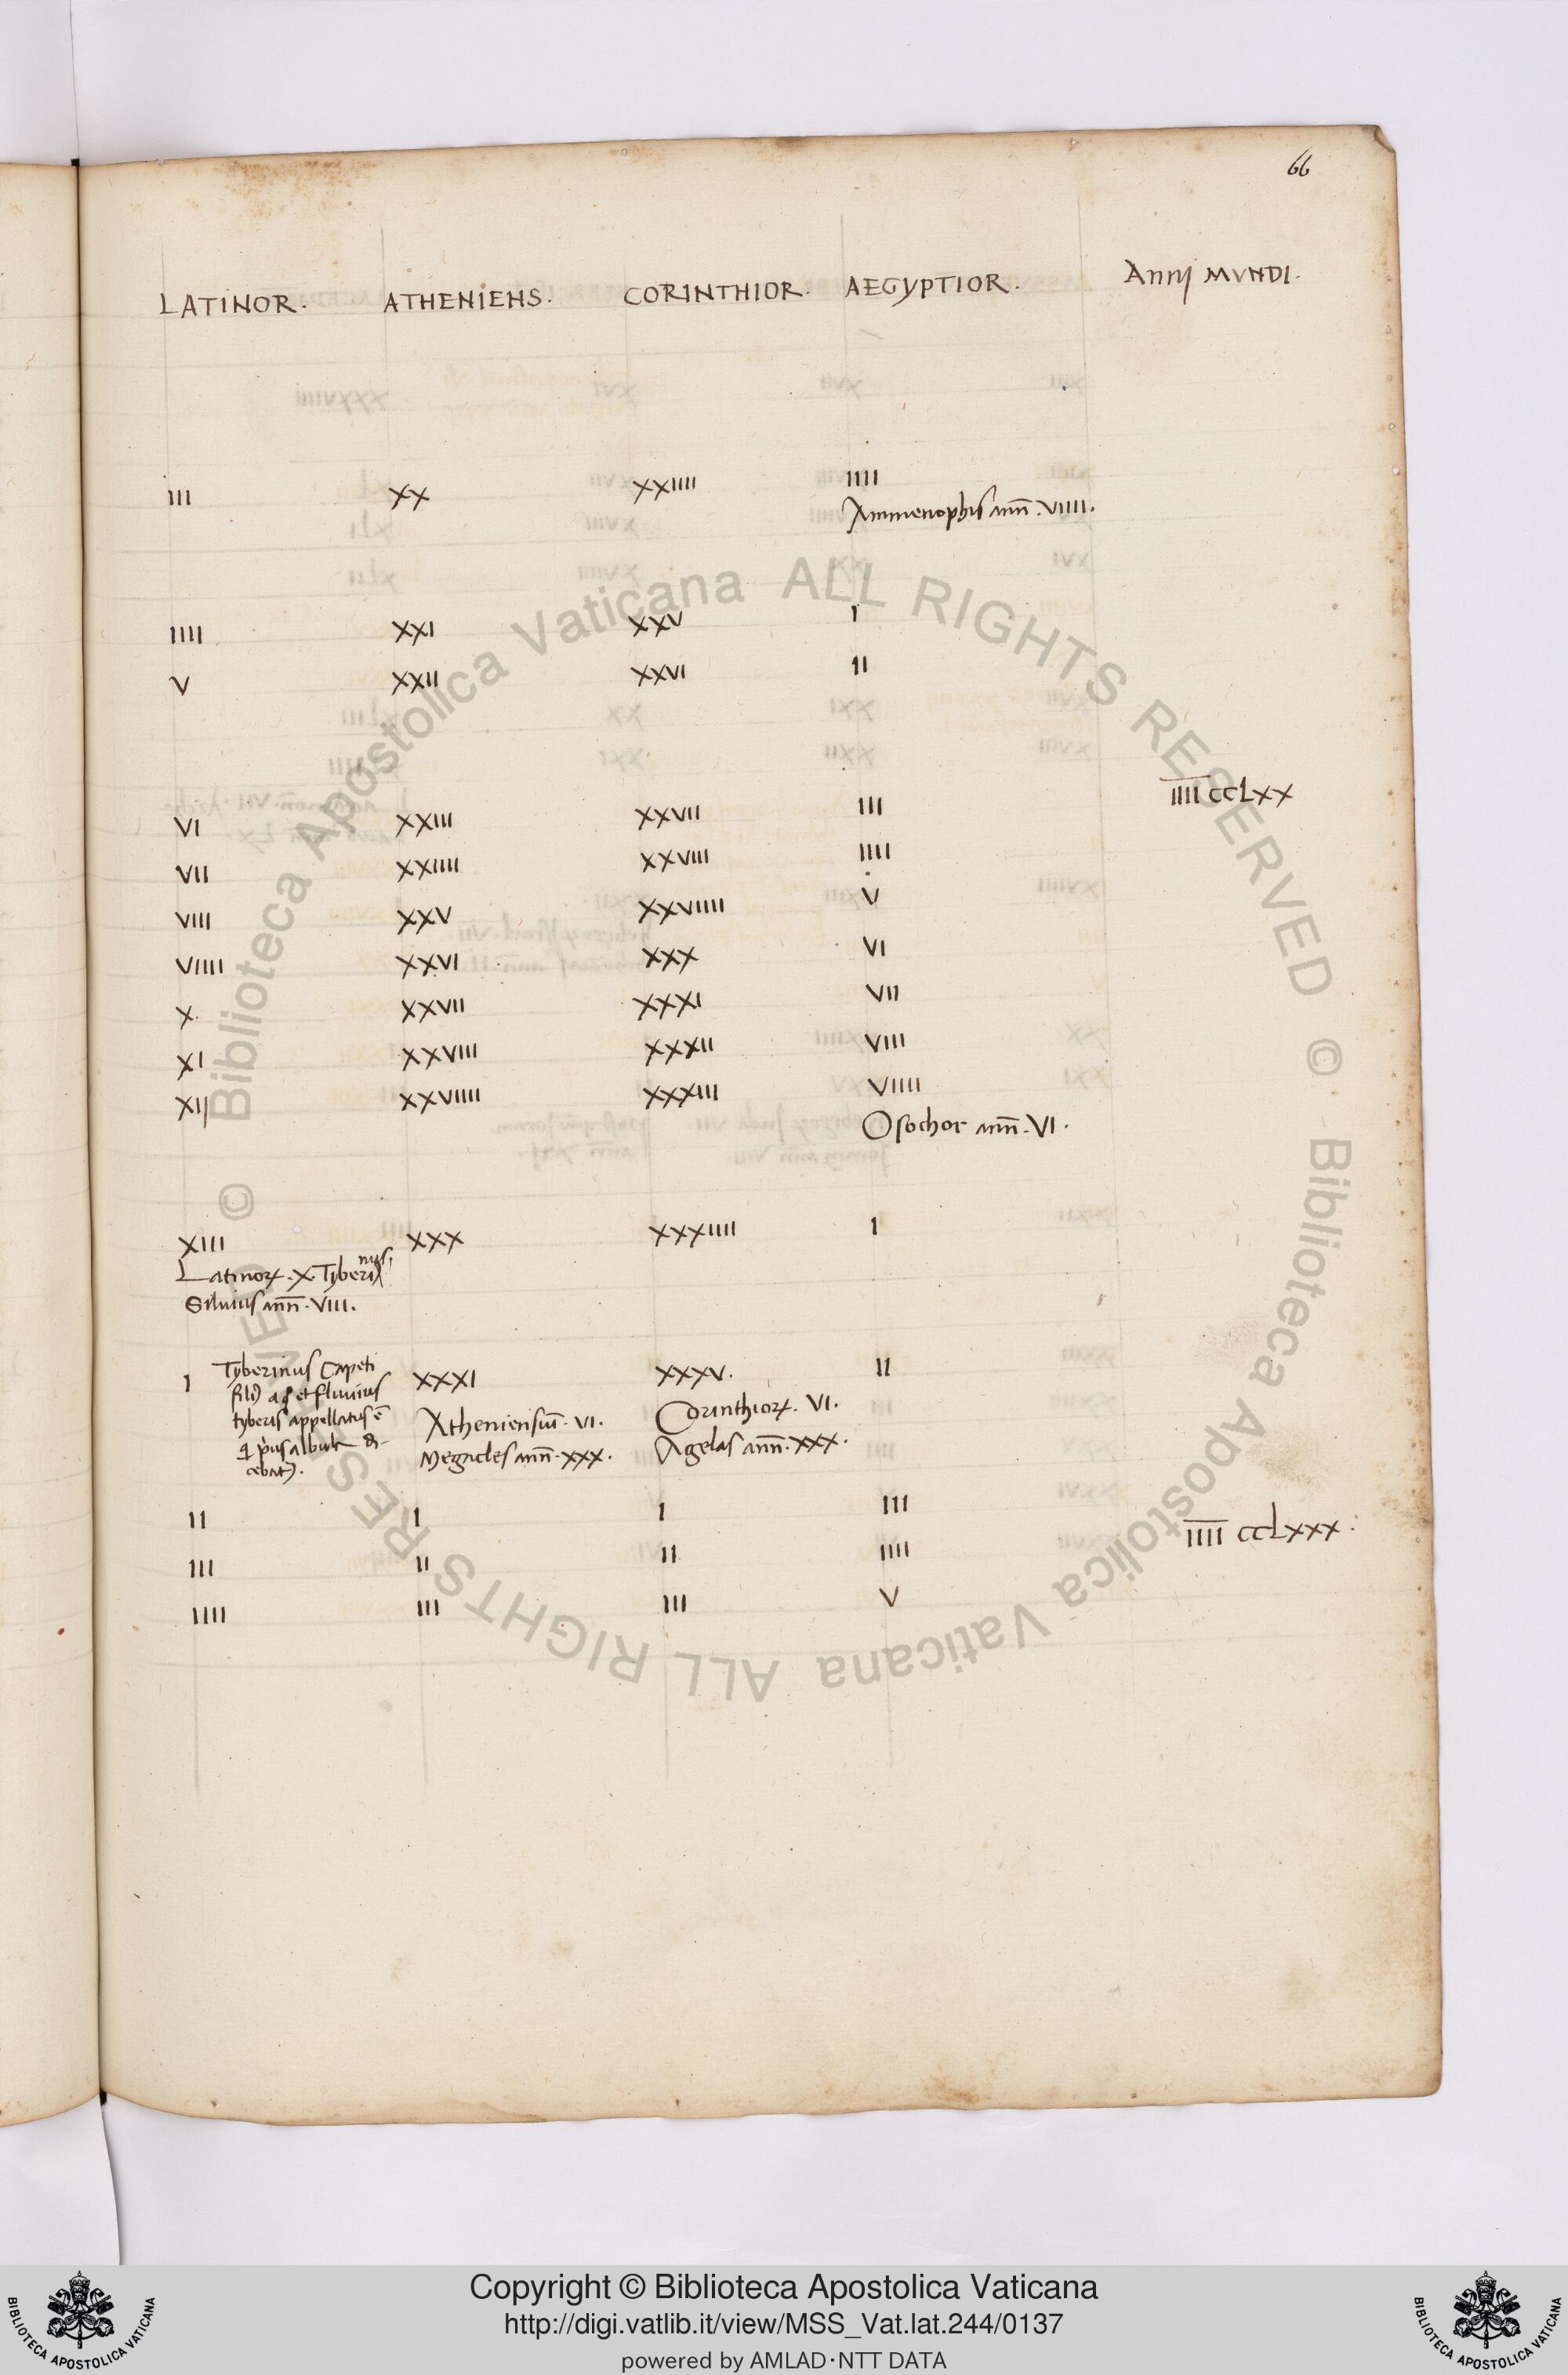 66
LATINOR. ATHENIENS. CORINTHIOR. AEGYPTIOR. Annj MVNDI.
III XX XXIIII IIII
Ammenophis ann̄. VIIII.
IIII XXI XXV I
V XXII XXVI II
VI XXIII XXVII III I̅I̅I̅I̅ CCLXX
VII XXIIII XXVIII IIII
VIII XXV XXVIIII V
VIIII XXVI XXX VI
X. XXVII XXXI VII
XI XXVIII XXXII VIII
XIJ XXVIIII XXXIII VIIII
Osochor ann̄. VI.
XIII XXX XXXIIII I
Latinoꝝ. X. Tyberinus
Siluius ann̄. VIII.
I XXXI XXXV. II
Tyberinus Capeti
filꝰ a q̇ et fluuius
tyberis appellatus ē
q pͥus albula di
cebatꝰ.
Atheniensiū. VI.
Megacles ann̄. XXX.
Corinthioꝝ. VI.
Agelas ann̄. XXX.
II I I III I̅I̅I̅I̅ CCLXXX.
III II II IIII
IIII III III V
© Biblioteca Apostolica Vaticana ALL RIGHTS RESERVED
© Biblioteca Apostolica Vaticana ALL RIGHTS RESERVED
Copyright © Biblioteca Apostolica Vaticana
http://digi.vatlib.it/view/MSS_Vat.lat.244/0137
powered by AMLAD·NTT DATA
BIBLIOTECA APOSTOLICA VATICANA
BIBLIOTECA APOSTOLICA VATICANA